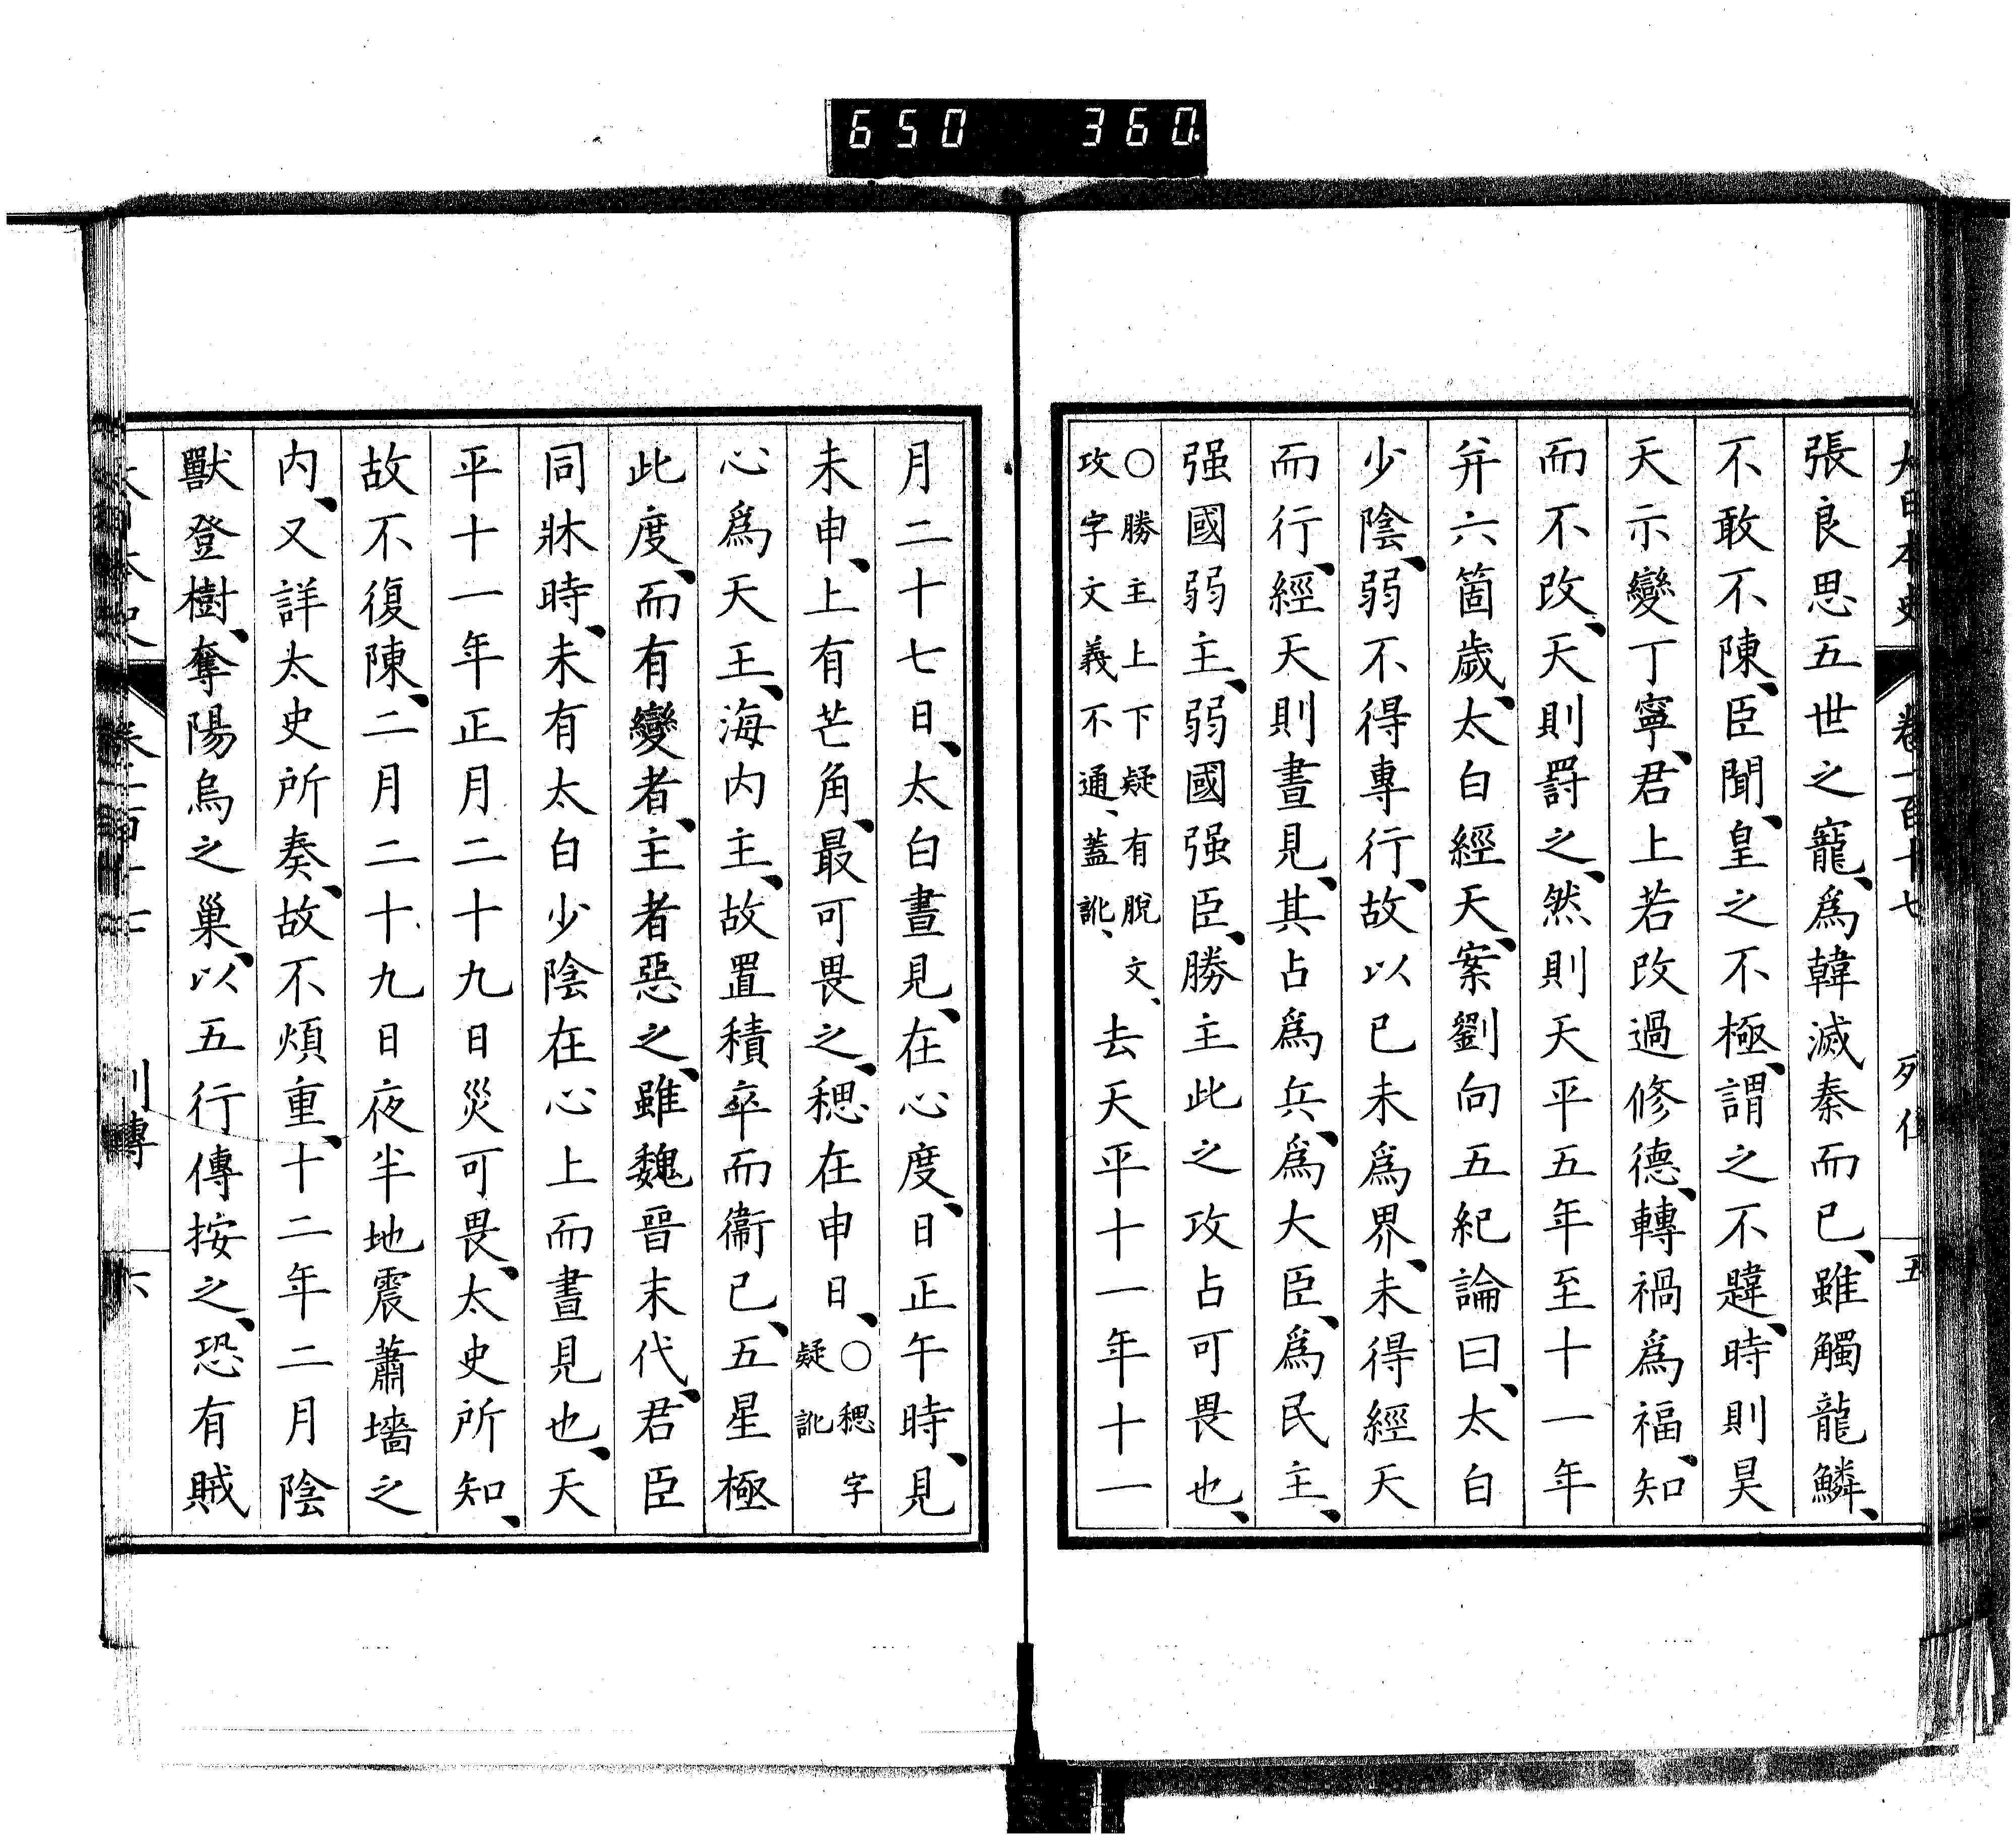 650 360
大日本史 卷一百十七 列傳 五
張良思五世之寵、爲韓滅秦而已、雖觸龍鱗、
不敢不陳、臣聞、皇之不極、謂之不韙、時則昊
天示變丁寧、君上若改過修德、轉禍爲福、知
而不改、天則罸之、然則天平五年至十一年
幷六箇歲、太白經天、案劉向五紀論曰、太白
少陰、弱不得專行、故以已未爲界、未得經天
而行、經天則晝見、其占爲兵、爲大臣、爲民主、
强國弱主、弱國强臣、勝主此之攻占可畏也、
○勝主上下疑有脫文、
攻字文義不通、蓋訛、
去天平十一年十一
月二十七日、太白晝見、在心度、日正午時、見
未申、上有芒角、最可畏之、穏在申日、
○穏字
疑訛
心爲天王、海内主、故置積卒而衞已、五星極
此度、而有變者、主者惡之、雖魏晉末代、君臣
同牀時、未有太白少陰在心上而晝見也、天
平十一年正月二十九日災可畏、太史所知、
故不復陳、二月二十九日夜半地震蕭墻之
内、又詳太史所奏、故不煩重、十二年二月陰
獸登樹、奪陽烏之巢、以五行傳按之、恐有賊
列傳 六